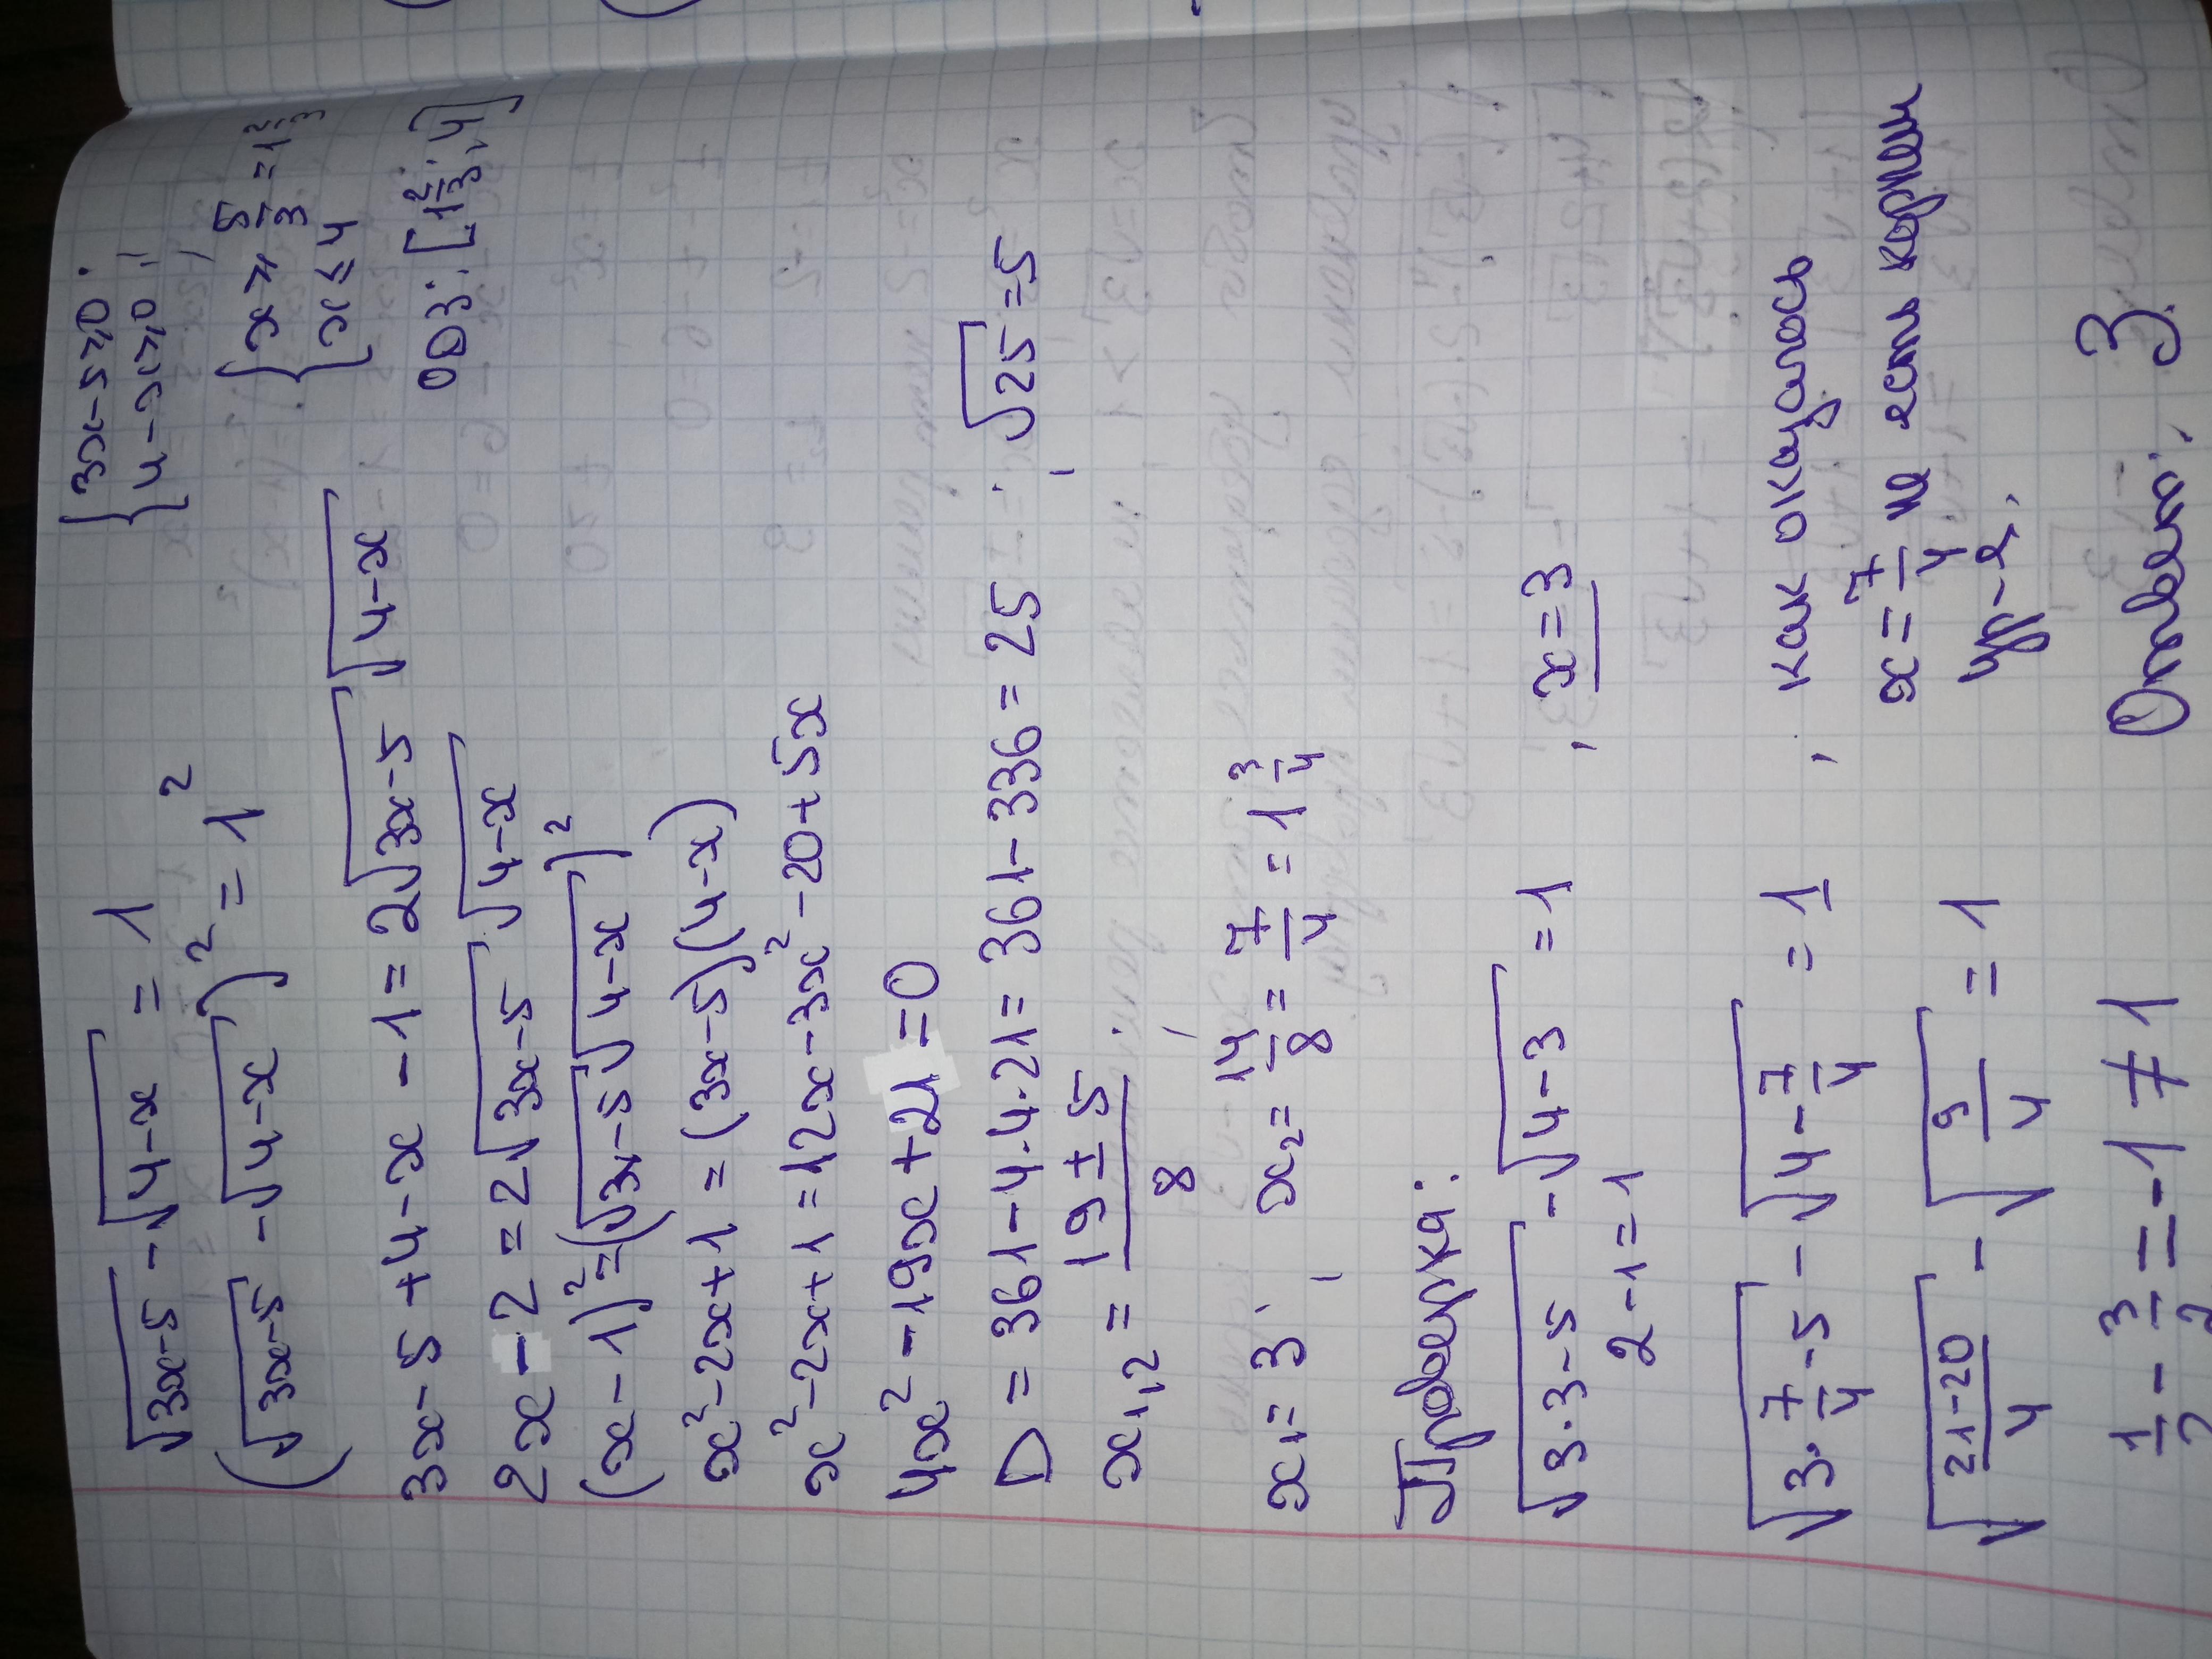 √(3x-5) - √(4-x) = 1
{ 3x-5≥0;
4-x≥0;
(√(3x-5) - √(4-x))² = 1²
{ x ≥ 5/3 = 1 2/3
x ≤ 4
3x-5+4-x-1 = 2√(3x-5) √(4-x)
ОДЗ: [1 2/3; 4]
2x-2 = 2√(3x-5) √(4-x)
(x-1)² = (√(3x-5) √(4-x))²
x²-2x+1 = (3x-5)(4-x)
x²-2x+1 = 12x-3x²-20+5x
4x²-19x+21=0
D = 361-4·4·21 = 361-336 = 25; √25 = 5
x₁,₂ = (19±5)/8;
x₁ = 3; x₂ = 14/8 = 7/4 = 1 3/4
Проверка:
√(3·3-5) - √(4-3) = 1, x=3
2-1=1
√(3·7/4-5) - √(4-7/4) = 1, как оказалось
x = 7/4 не есть корнем
√((21-20)/4) - √(9/4) = 1
ур-я.
1/2 - 3/2 = -1 ≠ 1
Ответ: 3.